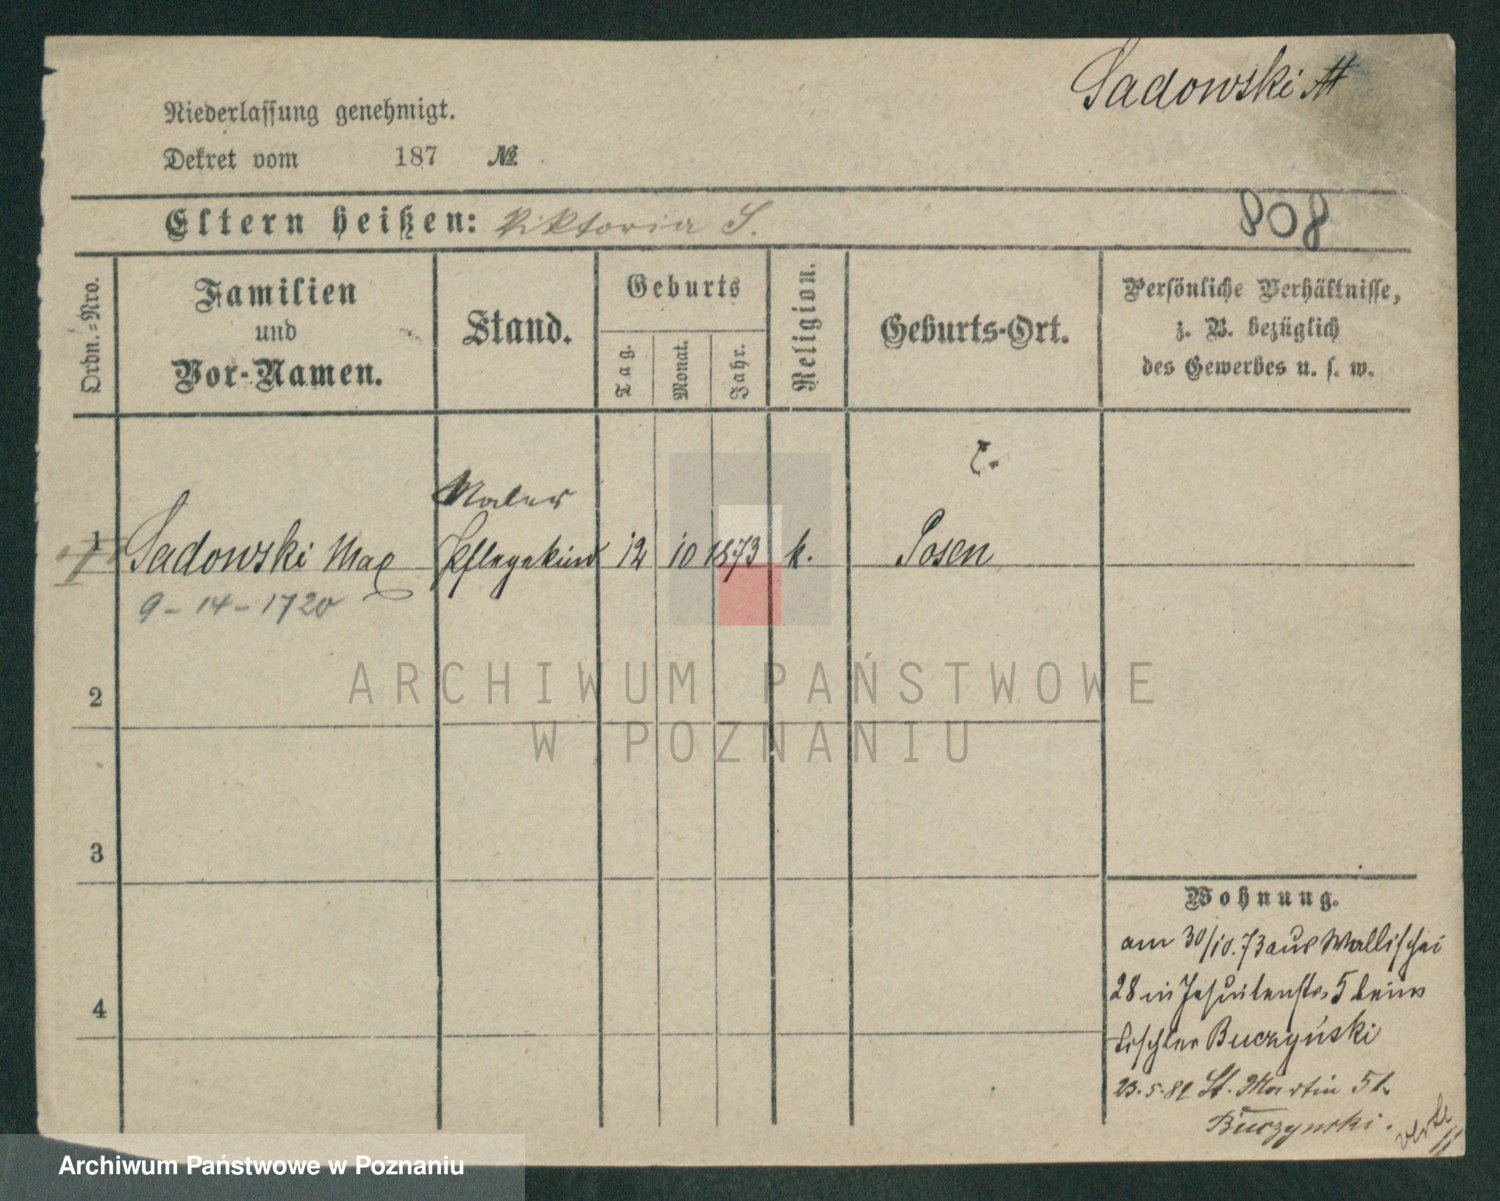 Sadowski M
Niederlassung genehmigt.
Dekret vom 187 №
808
Eltern heißen: Viktoria S.
Ordn.=Nro.
Familien
und
Vor-Namen.
Stand.
Geburts
Tag.
Monat.
Jahr.
Religion.
Geburts-Ort.
Persönliche Verhältnisse,
z. B. bezüglich
des Gewerbes u. s. w.
Maler
1 Sadowski Max Pflegekind 12 10 1873 k. Posen
9-14-1720
2
3
4
Wohnung.
am 30/10.73 aus Wallischei
28 in Jesuitenstr. 5 beim
Tischler Buczyński
23.5.82 St. Martin 5 b.
Buczynski.
ARCHIWUM PAŃSTWOWE
W POZNANIU
Archiwum Państwowe w Poznaniu